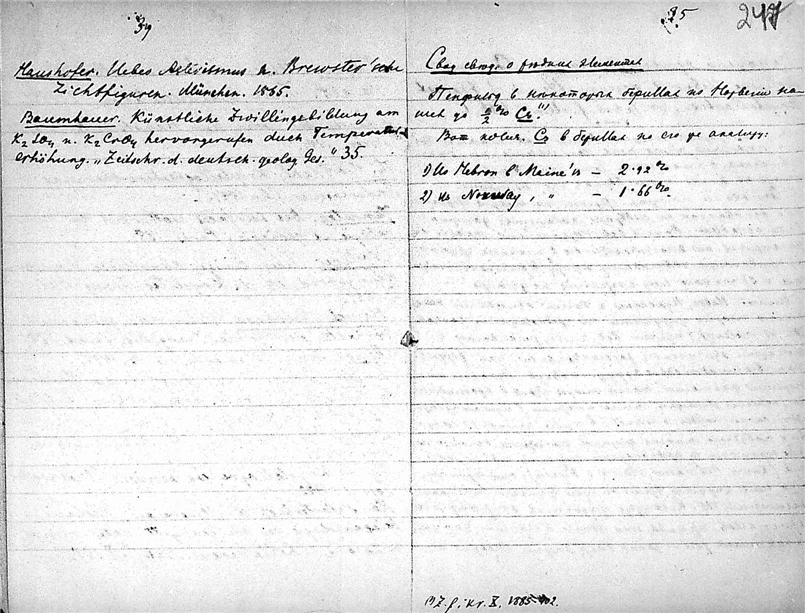 39
Haushofer. Ueber Asterismus u. Brewster'sche
Lichtfiguren. München. 1865.
Baumhauer. Künstliche Zwillingsbildung am
K2SO4 u. K2CrO4 hervorgerufen durch Temperatur
erhöhung. „Zeitschr. d. deutsch. geolog Ges." 35.
35
247
Свод свед. о редких элементах
Пенфильд в некоторых бериллах из
до 2% Cs.¹⁾
Cs в бериллах по его же анализу:
1) Из Hebron в Maine'ѣ — 2.92%
2) из Norway, „ — 1.66%
1) Z. f. Kr. X. 1885.